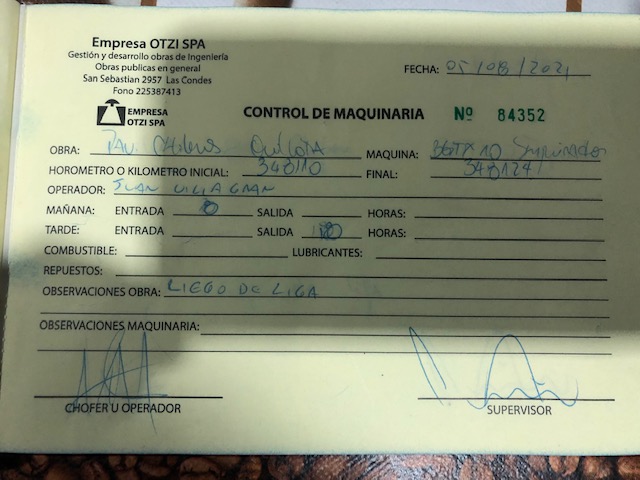 Empresa OTZI SPA
Gestión y desarrollo obras de Ingeniería
Obras publicas en general
San Sebastian 2957 Las Condes
Fono 225387413
EMPRESA
OTZI SPA
CONTROL DE MAQUINARIA Nº 84352
FECHA: 05/08/2021
OBRA: MAQUINA:
HOROMETRO O KILOMETRO INICIAL: FINAL:
OPERADOR: JUAN VILLAGRAN
MAÑANA: ENTRADA 8 SALIDA HORAS:
TARDE: ENTRADA SALIDA HORAS:
COMBUSTIBLE: LUBRICANTES:
REPUESTOS:
OBSERVACIONES OBRA: LIEGO DE LIGA
OBSERVACIONES MAQUINARIA:
CHOFER U OPERADOR SUPERVISOR